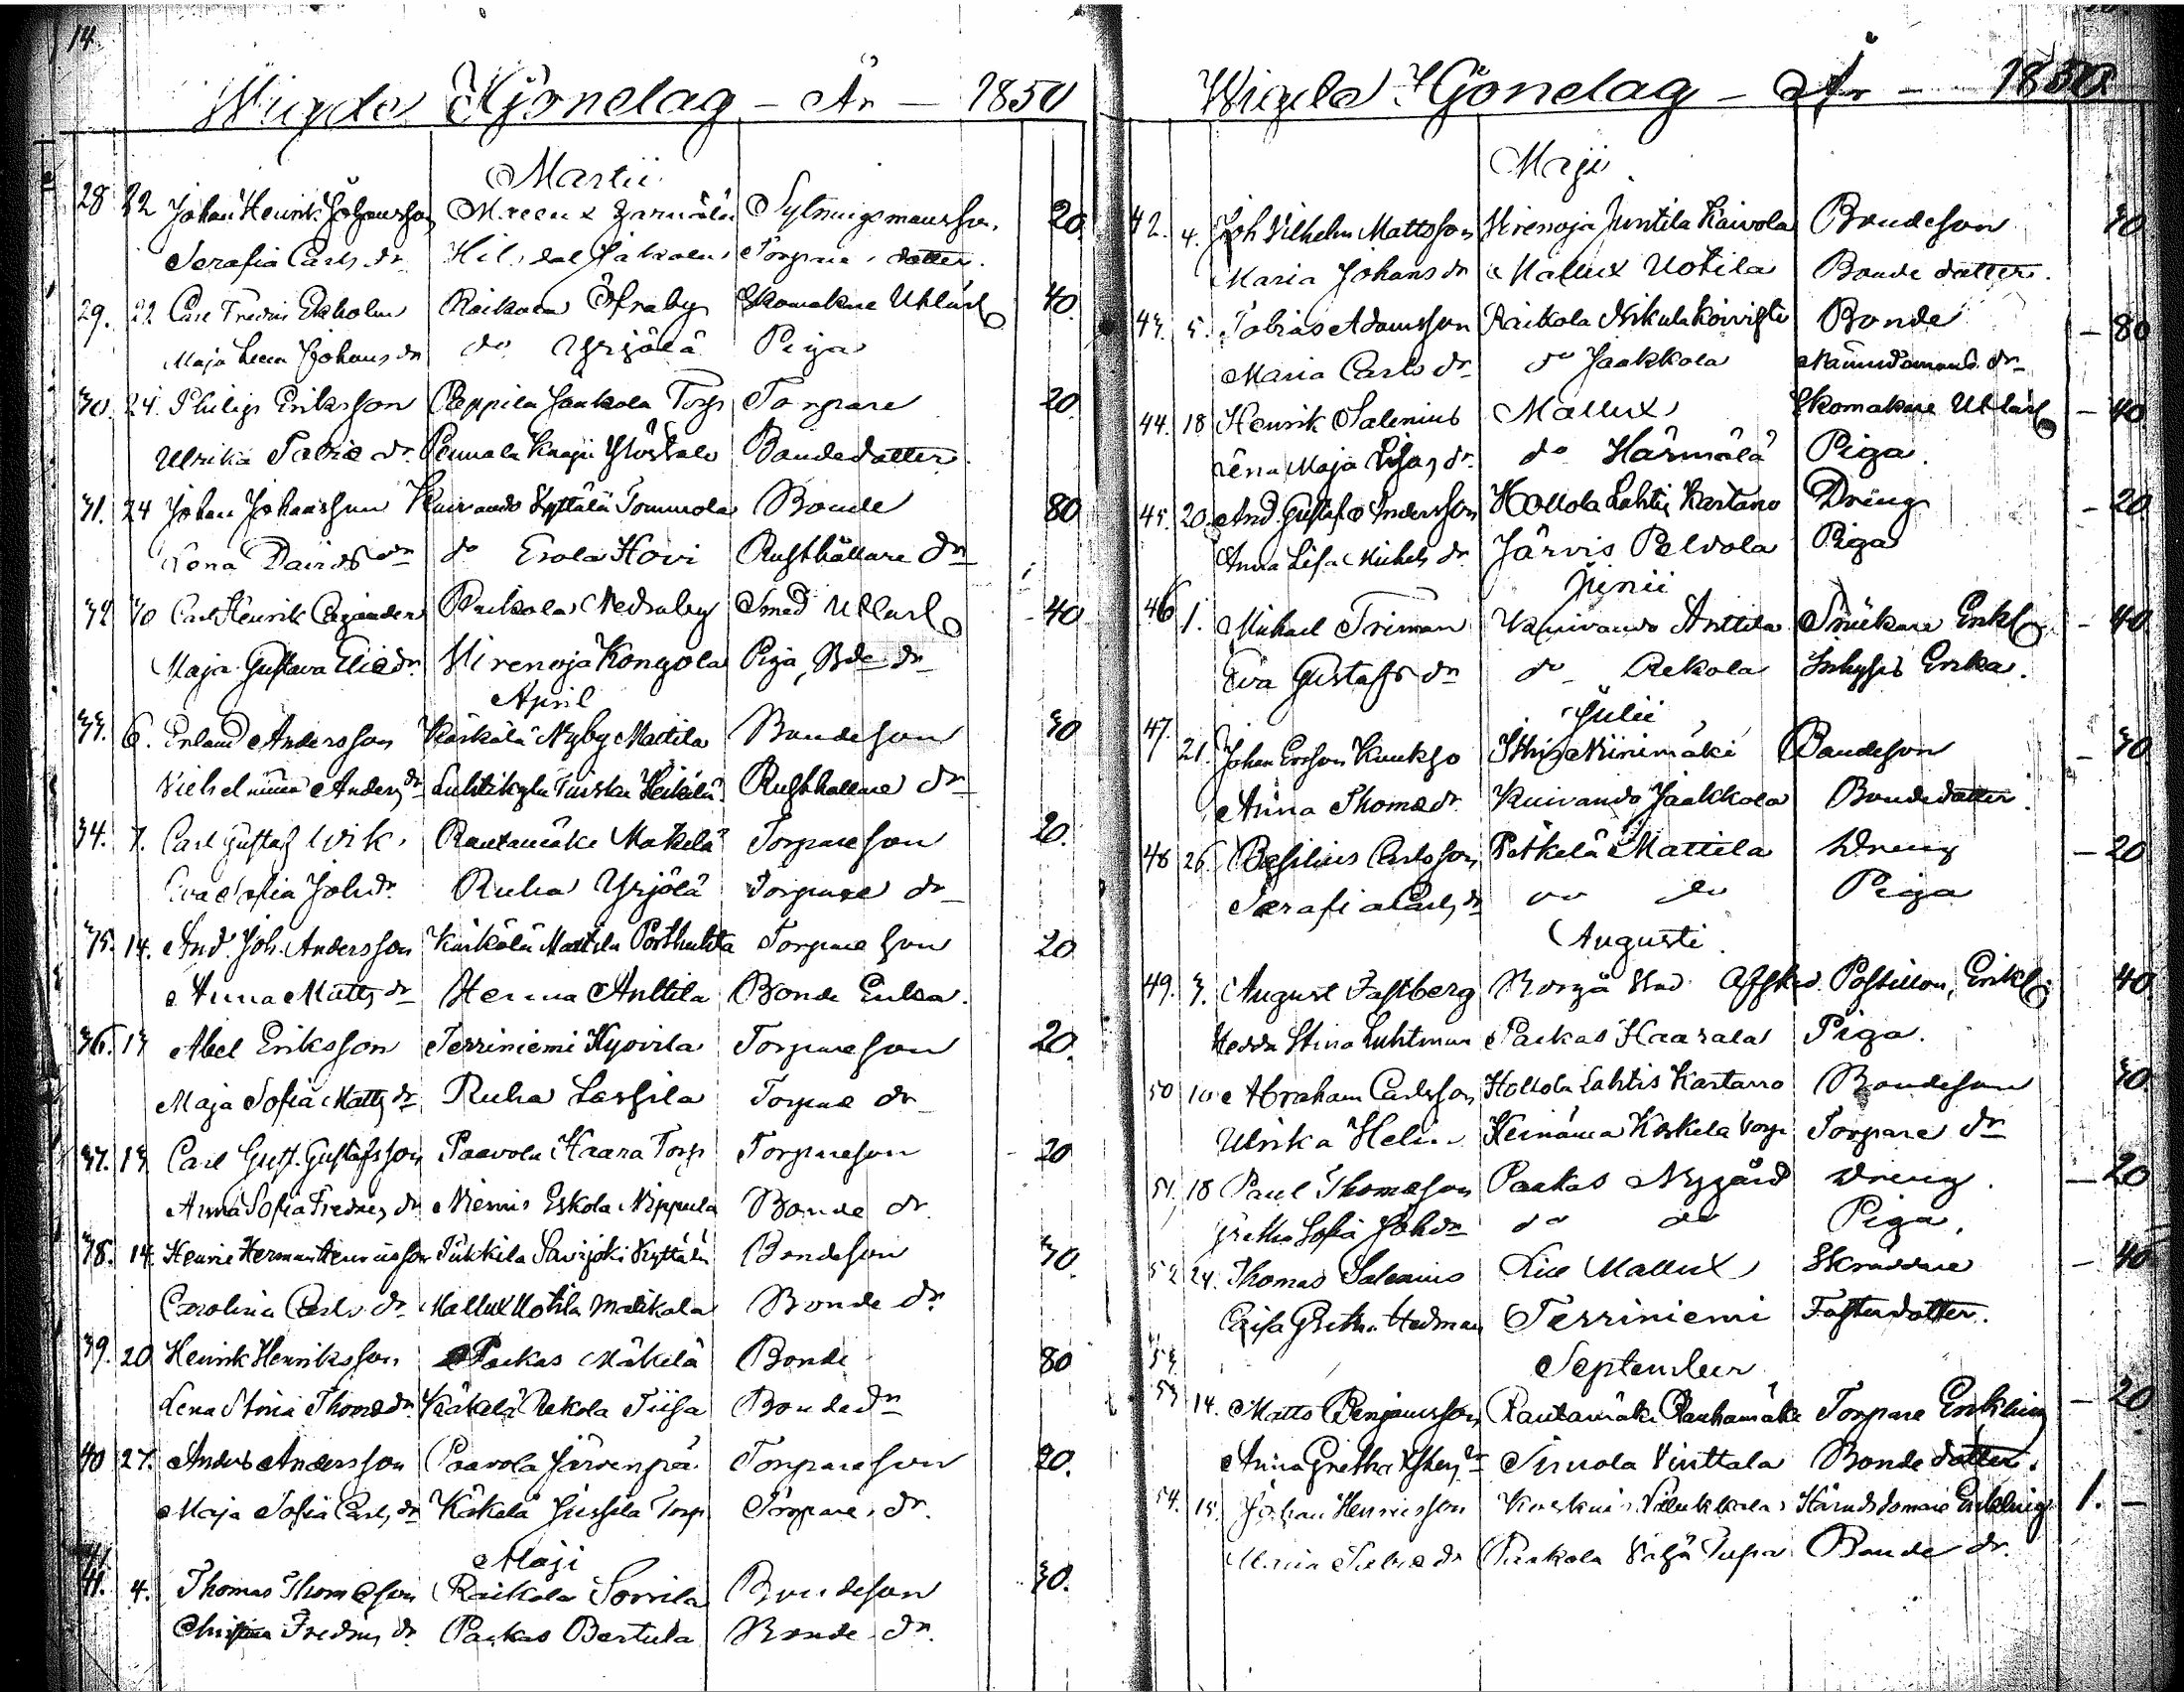 14
Wigde Hjonelag - År - 1850
Martii
28 22 Johan Henrik Johansson Mallux 20
Serafia Carls dr Torpare datter
29. 22 Carl Fredric Ekholm Raikola Öfraby Skomakare Utlärd 40
Maja Lena Johans dr do Yrjölä Piga
30. 24. Philip Eriksson Pappila Jaakola Torp Torpare 20
Ulrika Tobiæ dr. Pennala Knapi Yliöstalo Bondedatter
31. 24 Johan Johansson Kuivando Kyttälä Tommola Bonde 80
Lena Davids dr do Erola Hovi Rusthållare dr
32 30 Carl Henrik Cajander Raikola Nedraby Smed Utlärd 40
Maja Gustava Eliæ dr. Virenoja Kongola Piga, Bde dr
April
33. 6. Erland Andersson Kärkölä Nyby Mattila Bondeson 30
Vilhelmina Anders dr Luhtikylä Tuisku Heikilä Rusthållare dr
34. 7. Carl Gustaf Wik Rautamäki Mäkelä Torpareson 20.
Eva Sofia Joh dr. Ruha Yrjölä Torpare dr
35. 14. And. Joh. Andersson Kärkölä Mattila Porthuhta Torpare son 20
Anna Matts dr Henna Anttila Bonde Enka.
36. 13 Abel Eriksson Terriniemi Hyövila Torpareson 20.
Maja Sofia Matts dr Ruha Lassila Torpare dr
37. 13 Carl Gust. Gustafsson Paavola Haara Torp Torpareson 20
Anna Sofia Fredrics dr Niemis Eskola Nippula Bonde dr.
38. 14. Henric Herman Henricsson Tükkila Savijoki Kyttälä Bondeson 30.
Carolina Carls dr Mallux Uotila Matikala Bonde dr.
39. 20 Henrik Henriksson Pakas Mäkelä Bonde 80
Lena Stina Thomæ dr. Käkelä Rekola Tiisa Bonde dr
40 27. Anders Andersson Paavola Järvenpää Torpareson 20.
Maja Sofia Carls dr Käkelä Jussila Torp Torpare dr.
Maji
41. 4. Thomas Thomæson Raikola Sorrila Bondeson 30.
Christina Fredrics dr. Pakas Bertula Bonde dr.
Wigde Hjonelag - År - 1850
Maji
42. 4. Joh Vilhelm Mattsson Virenoja Juntila Kaivola Bondeson 30
Maria Johans dr Mallux Uotila Bonde datter.
43. 5. Tobias Adamsson Raikola Nikula Koivisto Bonde - 80
Maria Carls dr do Jaakkola Nämndemans dr
44. 18 Henrik Salenius Mallux Skomakare Utlärd - 40
Lena Maja dr. do Härmälä Piga.
45. 20. And. Gustaf Andersson Hollola Lahtis Kartano Dräng - 20
Anna Lisa Michels dr. Järvis Pelvola Piga
Junii
46 1. Michael Triman Kuivando Anttila Snickare Enkl. - 40
Eva Gustafs dr do Rekola Inhyses Enka.
Julii
47. 21. Johan Ersson Kuukso Itis Niinimäki Bondeson - 30
Anna Thomæ dr. Kuivando Jaakkola Bondedatter.
48 26 Basilius Carlsson Petkelä Mattila Dreng - 20
Serafia Carls dr do do Piga
Augusti
49. 3. August Fastberg Borgå Stad Afsked. Postillon, Enkl. 40
Hedda Stina Luhtman Pakas Haarala Piga.
50 10 Abraham Carlsson Hollola Lahtis Kartano Bondeson 30.
Ulrika Helin Heinämaa Koskela Torp Torpare dr
51. 18 Paul Thomæson Pakas Nygård Dreng. - 20
Gretha Sofia Joh dr do do Piga,
52 24. Thomas Salenius Mallux Skräddare - 40
Caisa Gretha Hedman Terriniemi Fosterdotter.
53
September
53 14. Matts Benjamsson Rautamäki Rauhamäki Torpare Enkling - 20
Anna Gretha dr Simola Vinttala Bonde datter.
54. 15 Johan Henricsson Häradsdomare Enkling 1. -
Maria Tobiæ dr Bonde dr.